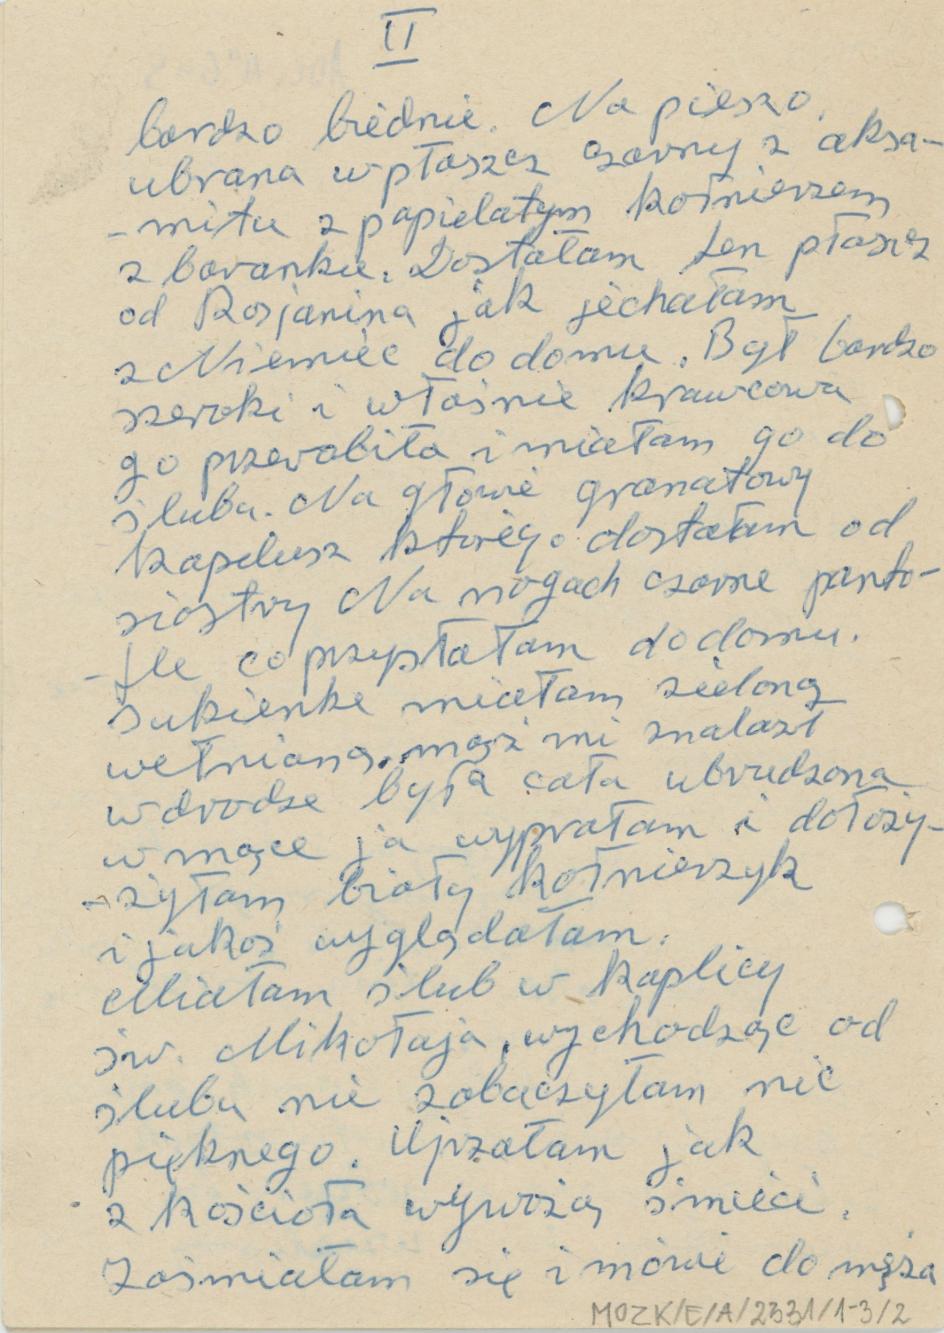 II
bardzo biednie. Na pieszo,
ubrana w płaszcz czarny z aksa-
-mitu z papielatym kołnierzem
z baranku. Dostałam ten płaszcz
od Rosjanina jak jechałam
z Niemiec do domu. Był bardzo
szeroki i właśnie krawcowa
go przerabiła i miałam go do
ślubu. Na głowie granatowy
kapelusz którego dostałam od
siostry Na nogach czarne panto-
-fle co przysłałam do domu.
Sukienke miałam zieloną
wełnianą, mąż mi znalazł
w drodze była cała ubrudzona
w mące ja wyprałam i dołoży-
-żyłam biały kołnierzyk
i jakoś wyglądałam.
Miałam ślub w kaplicy
św. Mikołaja, wychodząc od
ślubu nie zobaczyłam nic
pięknego. Ujrzałam jak
z kościoła wywożą śmieci.
Zaśmiałam się i mówie do męża
MOZK/E/A/2331/1-3/2